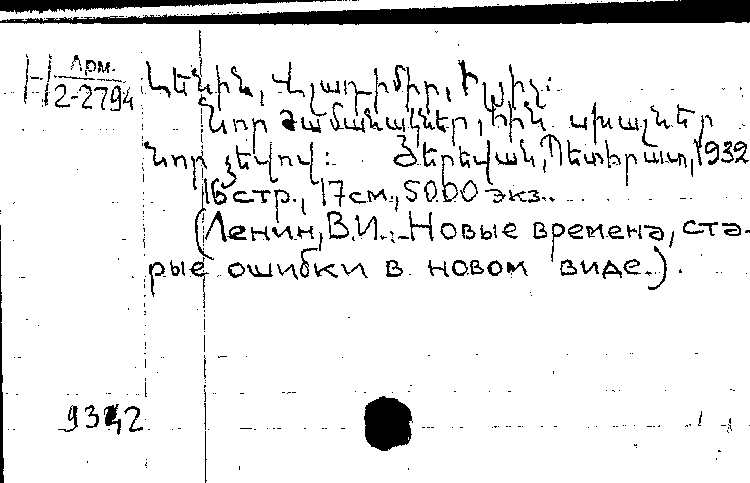 Н Арм. 2-2794 Լենին, Վլադիմիր, Իլյիչ:
Նոր ժամանակներ, հին սխալներ
նոր ձևով: Յերեվան, Պետհրատ, 1932
16 стр., 17 см., 5000 экз..
(Ленин, В.И. Новые времена, ста-
рые ошибки в новом виде.).